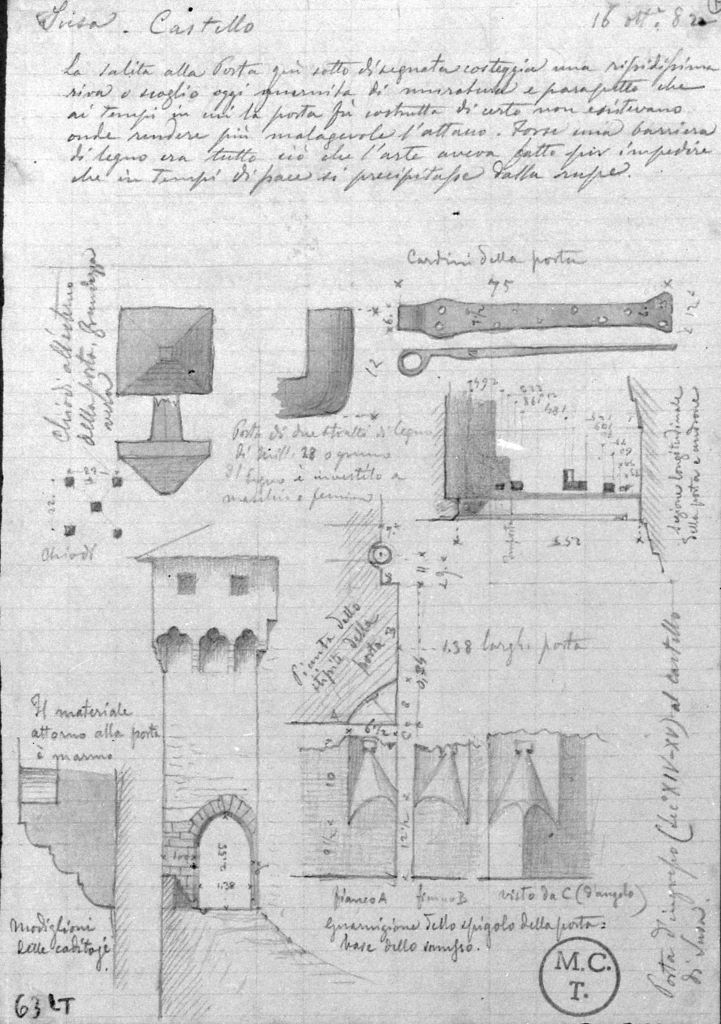 Susa. Castello
16 ott.e 82
La salita alla Porta quì sotto disegnata costeggia una ripidissima
riva o scoglio oggi guarnita di muratura e parapetto che
ai tempi in cui la porta fù costrutta di certo non esistevano
onde rendere più malagevole l'attacco. Forse una barriera
di legno era tutto ciò che l'arte aveva fatto per impedire
che in tempi di pace si precipitasse dalla rupe.
Cardini della porta
75
6
7 1/2
12
Chiodi all'esterno
della porta, grandezza
vera
12
Porta di due strati di legno
di mill. 28 ognuno
il legno è investito a
maschio e femina
Sezione longitudinale
della porta e androne
Chiodi
Pianta dello
stipite della
porta B
1.38 largh. porta
0,24
8
A
6 1/2
C
Il materiale
attorno alla porta
è marmo
10
9 1/2
12 1/2
100
2.55
1.38
fianco A
fianco B
visto da C (d'angolo)
Guarnizione dello spigolo della porta =
base dello smusso.
Modiglioni
delle caditoje
Porta d'ingresso (sec° XIV-XV) al castello
di Susa.
M.C.
T.
63 LT